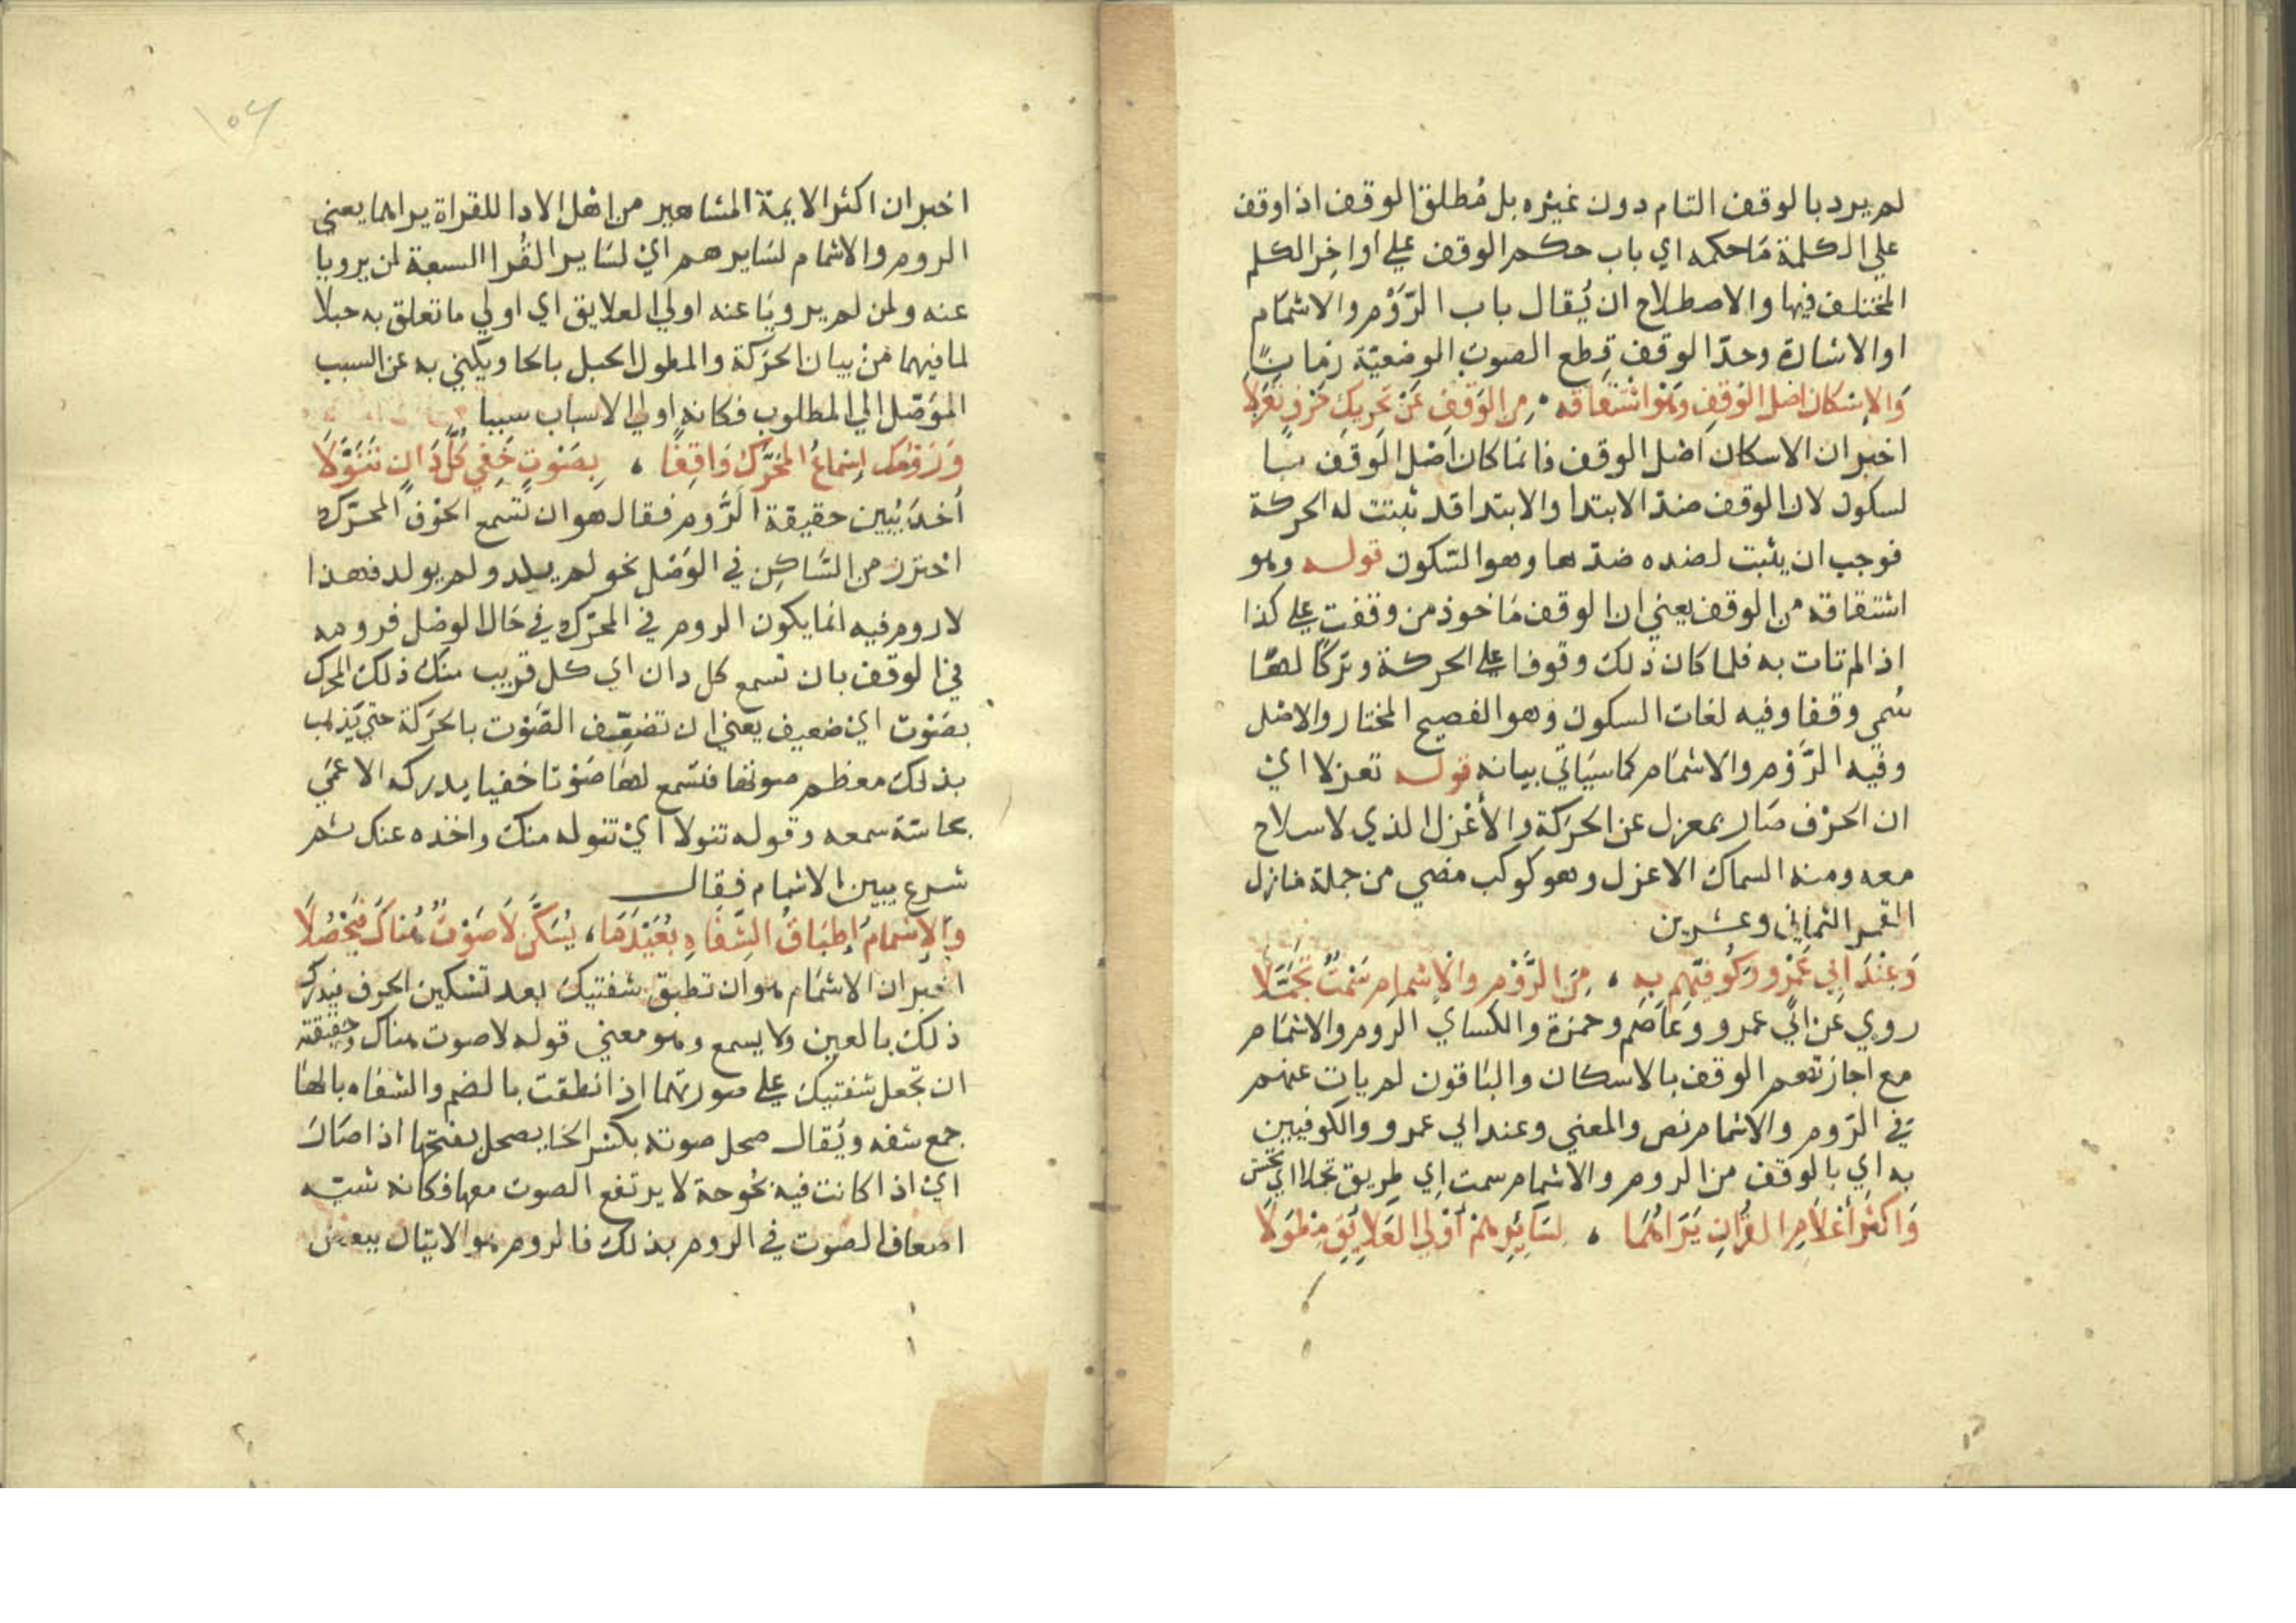 لم يرد بالوقف التام دون غيره بل مُطلق الوقف اذا وقف
علي الكلمة مَا حكمه اي باب حكم الوقف علي أواخِر الكلم
المختلف فيها والاصطلاح ان يُقال باب الرَّوْم والاشمَام
او الاشارة وحدّ الوقف قطع الصوت الوضعيّة زمانًا
وَالإِسْكان اصْل الوَقفِ وَهْوَ اشْتقَاقه ، مِن الوَقفِ عَنْ تَحرِيكِ حَرْفٍ تعَزَّلا
اخبر ان الاسكان اصْل الوقف فانما كان اصْل الوَقف
لسكون لان الوقف ضدّ الابتدا والابتدا قد ثبتت له الحركة
فوجب ان يثبت لضده ضدّها وهو السّكون قوله وهو
اشتقاقه من الوقف يعني ان الوقف مَاخوذ من وقفت علي كذا
اذا لم تات به فلما كان ذلك وقوفا علي الحركة وتركًا لهَا
سُمي وقفا وفيه لغات السكون وَهو الفصيح المختار والاصْل
وفيه الرَّوْم والاشمَام كما سيَاتي بيانه قوله تعزلا ايْ
ان الحرْف صَار بمعزل عن الحرَكة والأعْزل الذي لا سلاح
معه ومنه السماك الاعزل وهو كوكب مضي من جملة منازل
القمر الثماني وعشرين
وَعِنْدَ ابِي عَمْروٍ وَكُوفِيِّهِم بِهِ ، مِنَ الرَّوْمِ وَالإِشْمَامِ سَمْتٌ تجَمَّلا
روي عَن ابي عمرو وعَاصم وحمزة والكساي الرَوم والاشمَام
مع اجازتهم الوقف بالاسكان والبَاقون لم يات عنهم
في الرَوم والاشمام نص والمعني وعند ابي عمرو والكوفيين
به اي بالوقف من الروم والاشمام سمت اي طريق تجملا اي تحسّن
وَاكثَرُ أعْلاَمِ القُرَانِ يَرَاهُمَا ، لِسَائِرِهمْ أوْلَي العَلاَئِقِ مِطْوَلاَ
اخبر ان اكثر الايمة المشاهير من اهْل الادا للقراة يراهما يعني
الروم والاشمام لسَايرهم ايْ لسَاير القُرا السبعة لمن يرويا
عنه ولمن لم يرويَا عنه اولي العلايق اي اولي ما تعلق به حبلا
لما فيهما منْ بيان الحرَكة والمطول الحبل بالحا ويكني به عن السبب
الموَصّل الي المطلوب فكانه اولي الاسباب سببا
وَرَوْمُك إسْمَاعُ المُحَرَّكِ وَاقِفًا ، بِصَوْتٍ خَفِيٍ كُلَّ دَانٍ تَنَوَّلاَ
أخذَ يُبيِن حقيقة الرَّوم فقال هو ان تُسمِع الحرْفَ المحرَّك
احْترز من السَّاكِن في الوَصْل نحو لم يلد ولم يولد فهذا
لا روم فيه انما يكون الروم في المحرّك في حَال الوصْل فرومه
في الوقف بان تسمع كل دان اي كل قريب منك ذلك المحرك
بصَوْت ايْ ضعيف يعني ان تضعّف الصَّوْت بالحرَكة حتي يَذهب
بذلك معظم صوتها فتسْمع لهَا صَوْتا خفيا يدركه الاعمَي
بحاسّة سمعه وقوله تنولا ايْ تنوله منك واخذه عنك ثم
شرع يبين الاشمام فقال
وَالإِشمَامُ إطبَاقُ الشِّفَاهِ بُعَيْدَمَا ، يُسَكَّنُ لاَ صَوْتٌ هُنَاكَ فيَصْحَلاَ
اخبر ان الاشمَام هو ان تطبق شفتيك بعد تسْكين الحرف فيدرك
ذلك بالعين ولا يسمع وهو معني قوله لا صوت هناك وحقيقته
ان تجعل شفتيك علي صورتهما اذا نطقت بالضم والشفاه بالهَا
جمع شفه ويُقال صحل صوته بكسْر الحا يصحل بفتحها اذا صَار
ايْ اذا كانت فيه بُحوحة لا يرتفع الصوت معها فكانه شبّه
اضعاف الصَوت في الروم بذلك فالروم هو الاتيان ببعض